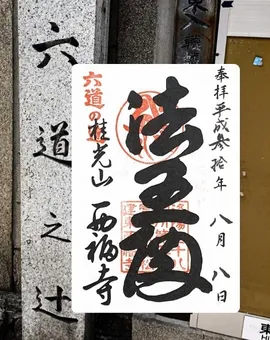 六道之辻
奉拝平成参拾年 八月 八日
法王殿
六道の
桂光山 西福寺